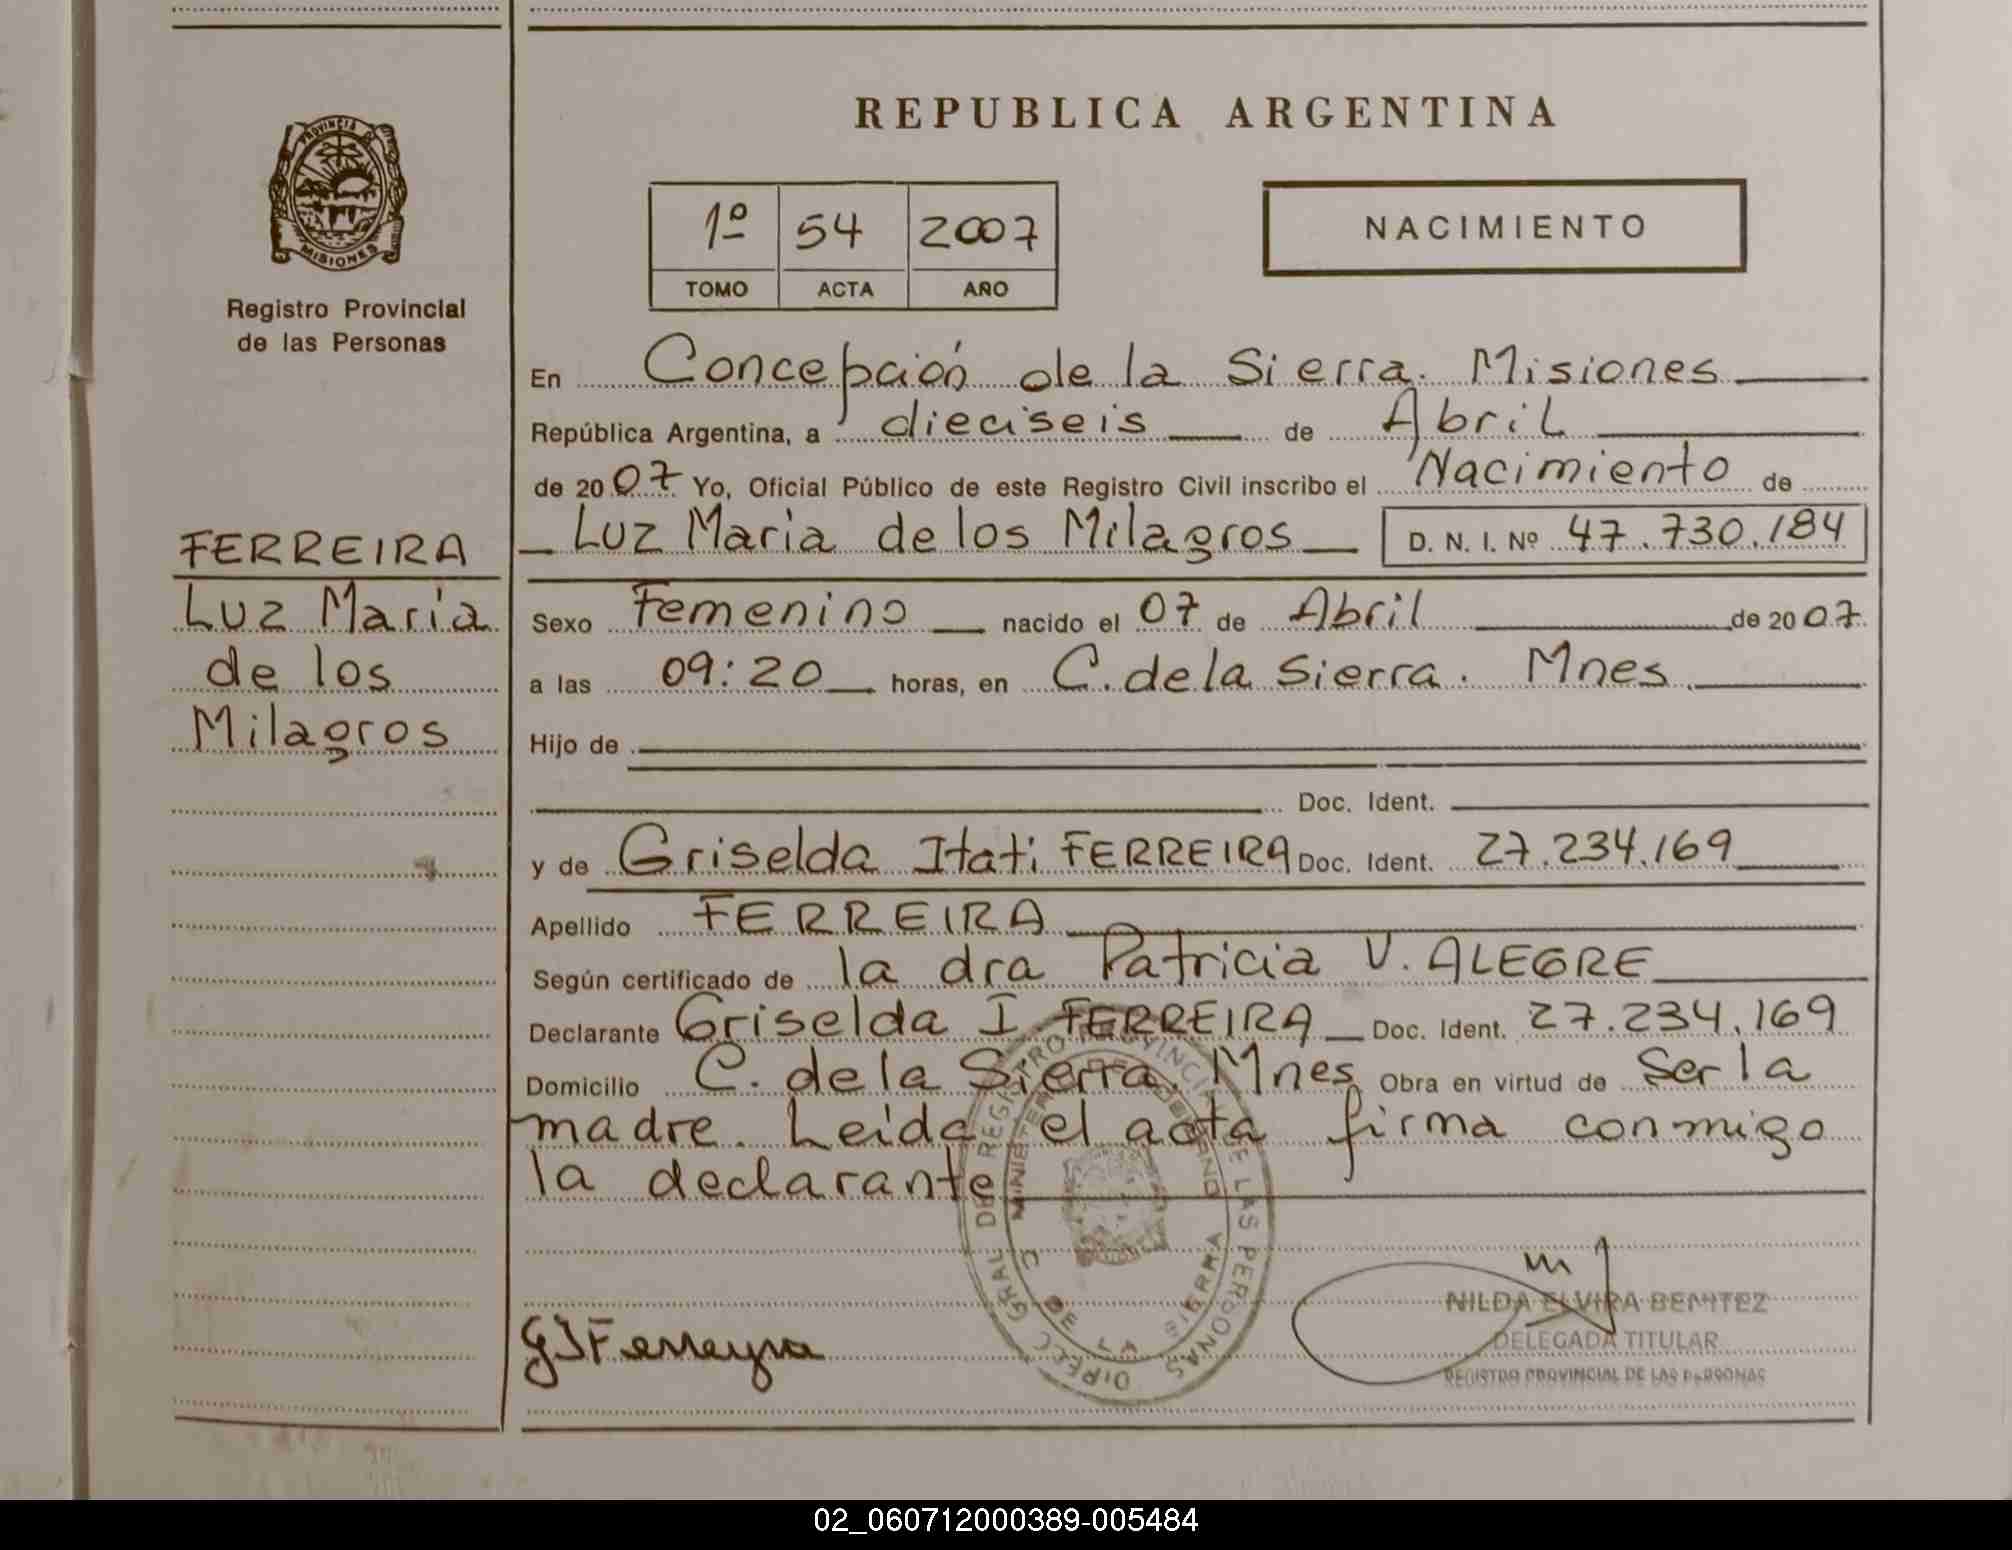 PROVINCIA D
MISIONES
Registro Provincial
de las Personas
FERREIRA
Luz Maria
de los
Milagros
REPUBLICA ARGENTINA
1º 54 2007
TOMO ACTA AÑO
NACIMIENTO
En Concepción de la Sierra. Misiones
República Argentina, a dieciseis de Abril
de 2007 Yo, Oficial Público de este Registro Civil inscribo el Nacimiento de
Luz Maria de los Milagros D. N. I. Nº 47.730.184
Sexo Femenino nacido el 07 de Abril de 2007
a las 09:20 horas, en C. de la Sierra. Mnes
Hijo de
Doc. Ident.
y de Griselda Itati FERREIRA Doc. Ident. 27.234.169
Apellido FERREIRA
Según certificado de la dra Patricia V. ALEGRE
Declarante Griselda I. FERREIRA Doc. Ident. 27.234.169
Domicilio C. de la Sierra. Mnes Obra en virtud de Ser la
madre. Leida el acta firma conmigo
la declarante
DIREC GRAL DE REGISTRO PROVINCIAL DE LAS PERSONAS
MINISTERIO DE GOBIERNO
C DE LA SIERRA
GIFerreyra
NILDA ELVIRA BENITEZ
DELEGADA TITULAR
REGISTRO PROVINCIAL DE LAS PERSONAS
02_060712000389-005484